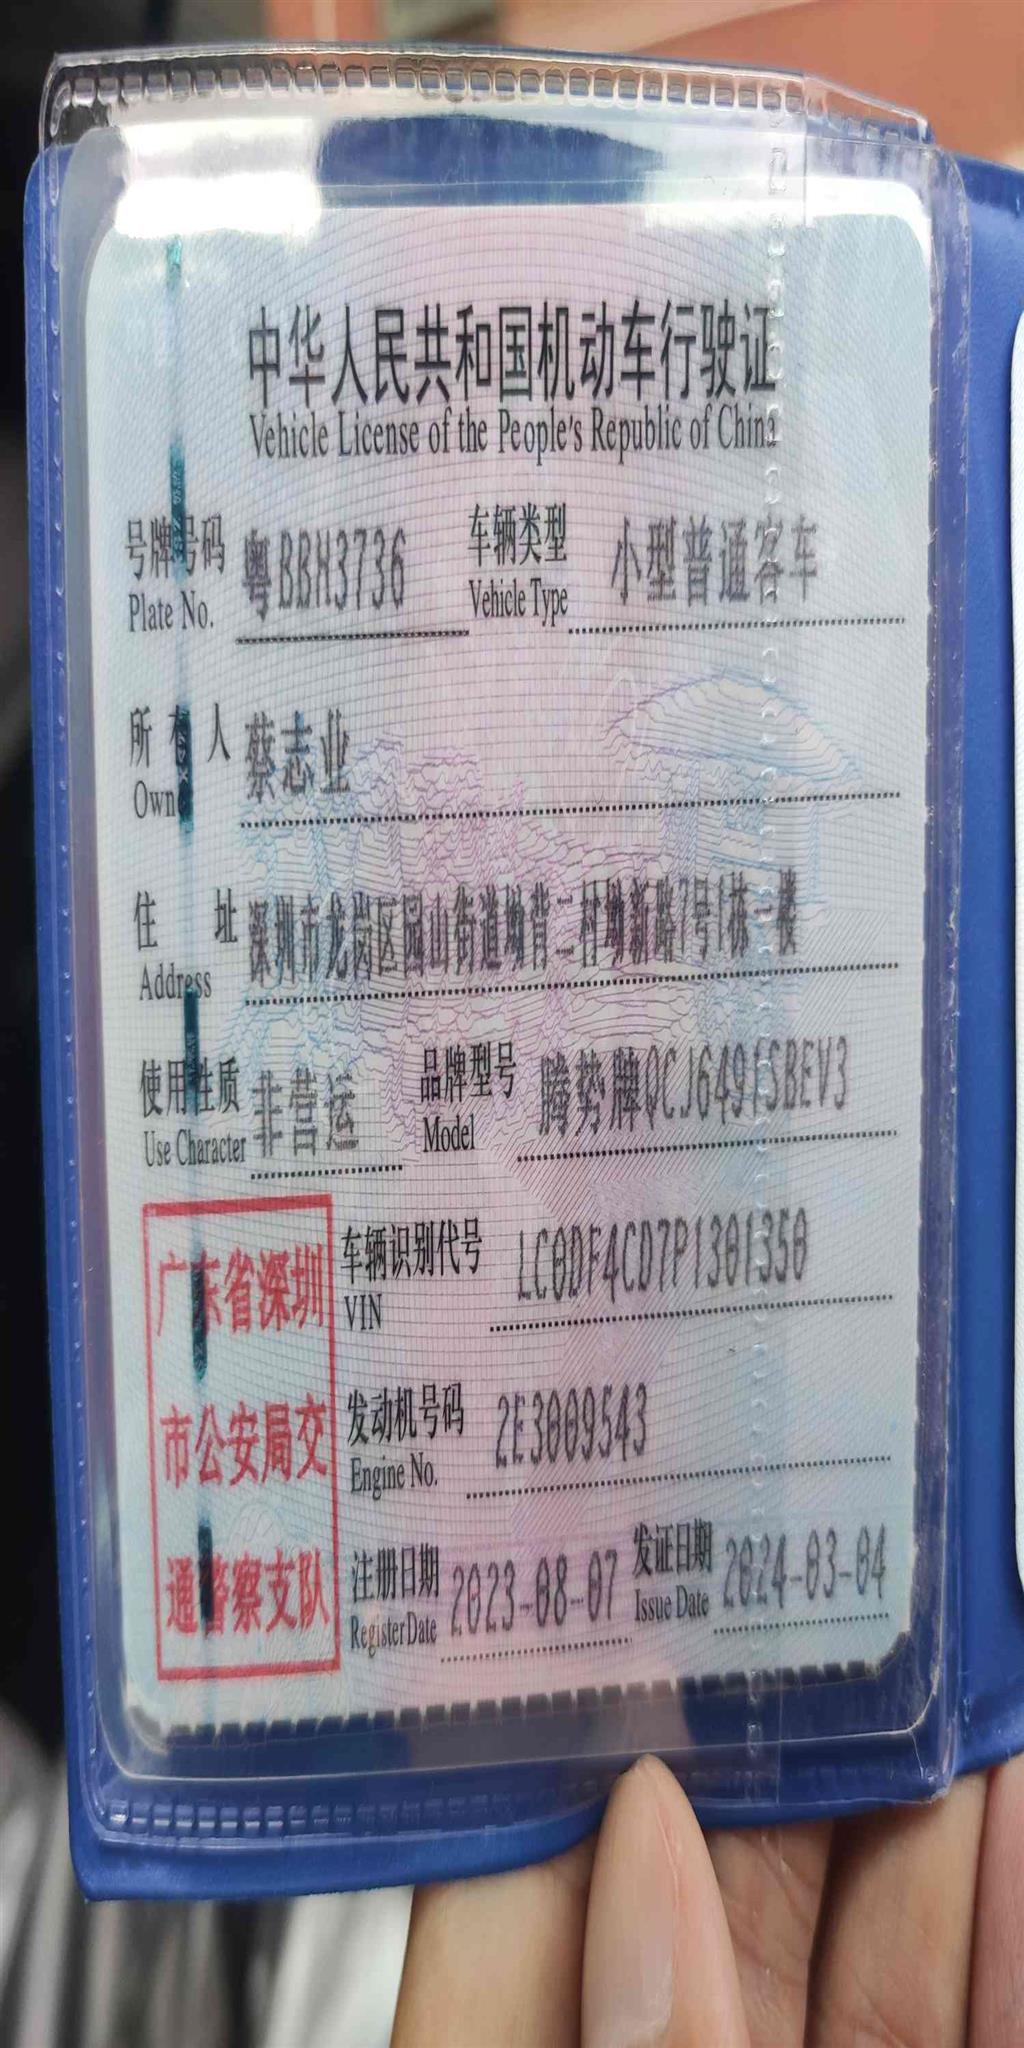 中华人民共和国机动车行驶证
Vehicle License of the People's Republic of China
号牌号码 粤BBH3736 车辆类型 小型普通客车
Plate No. Vehicle Type
所有人 蔡志业
Own
住址 深圳市龙岗区园山街道坳背二村坳新路7号1栋一楼
Address
使用性质 非营运 品牌型号 腾势牌QCJ6491SBEV3
Use Character Model
广东省深圳
市公安局交
通警察支队
车辆识别代号 LC0DF4CD7P1301350
VIN
发动机号码 2E3009543
Engine No.
注册日期 2023-08-07 发证日期 2024-03-04
Register Date Issue Date